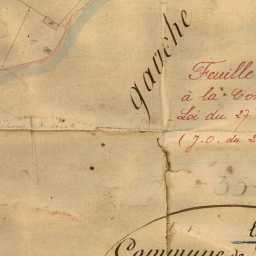 gauche
Feuille
à la Con
Loi du 27
( J.O. du 2
Commune de